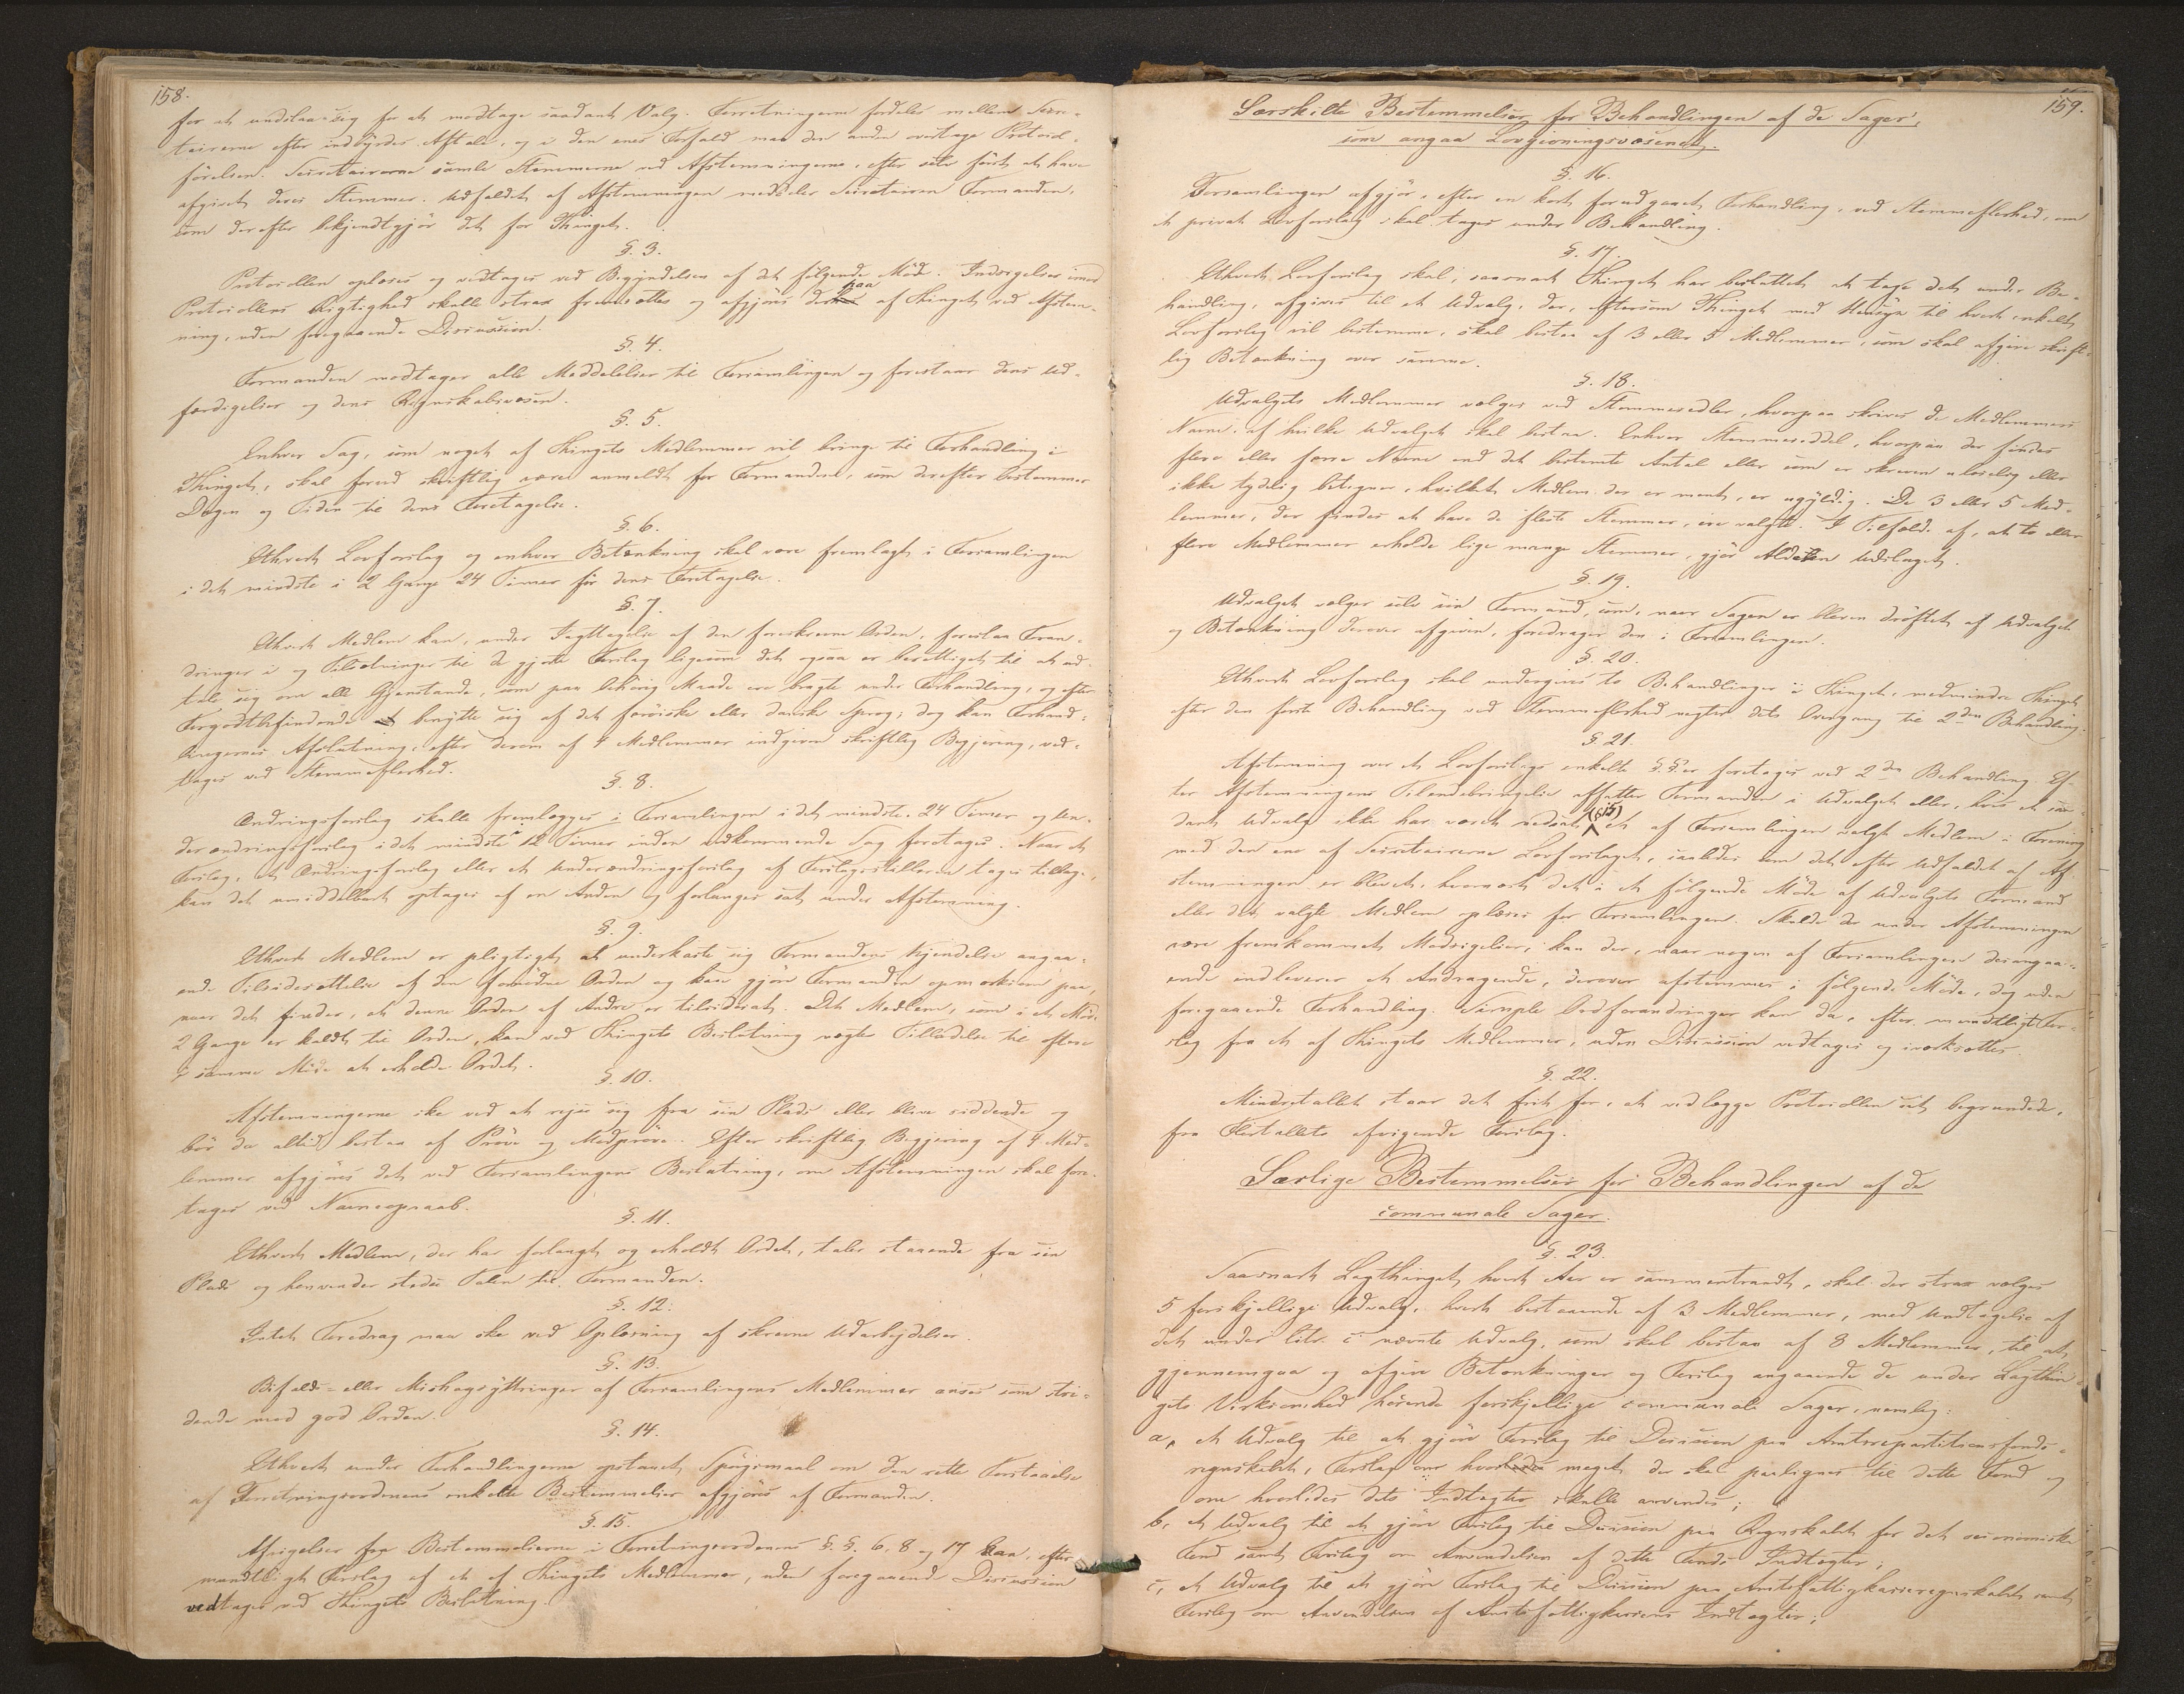 158.
for at undslaa sig for at modtage saadant Valg. Forretningerne fordeles mellem Secre-
tairerne efter indbyrdes Aftale, og i den enes Forfald maa den anden overtage Protocol-
førelsen. Secretairerne samle Stemmerne ved Afstemningerne, efter selv først at have
afgivet deres Stemmer. Udfaldet af Afstemningen meddeler Secretairen Formanden,
som derefter bekjendtgjør det for Thinget.
§. 3.
Protocollen oplæses og vedtages ved Begyndelsen af det følgende Møde. Indsigelser imod
Protocollens Rigtighed skulle strax fremsættes og afgjøres derpaa af Thinget ved Afstem-
ning, uden foregaaende Discussion.
§. 4.
Formanden modtager alle Meddelelser til Forsamlingen og forestaaer dens Ud-
færdigelser og dens Regnskabsvæsen.
§. 5.
Enhver Sag, som noget af Thingets Medlemmer vil bringe til Forhandling i
Thinget, skal forud skriftlig være anmeldt for Formanden, som derefter bestemmer
Dagen og Tiden til dens Foretagelse.
§. 6.
Ethvert Lovforslag og enhver Betænkning skal være fremlagt i Forsamlingen
i det mindste i 2 Gange 24 Timer før dens Foretagelse.
§. 7.
Ethvert Medlem kan, under Iagttagelse af den foreskrevne Orden, foreslaa Foran-
dringer i og Tilsætninger til de gjorte Forslag ligesom det ogsaa er berettiget til at ud-
tale sig om alle Gjenstande, som paa behørig Maade ere bragte under Forhandling, og efter
Forgodtbefindende at benytte sig af det færøiske eller danske Sprog; dog kan Forhand-
lingernes Afslutning, efter derom af 4 Medlemmer indgiven skriftlig Begjæring, ved-
tages ved Stemmeflerhed.
§. 8.
Ændringsforslag skulle fremlægges i Forsamlingen i det mindste 24 Timer og Un-
derændringsforslag i det mindste 12 Timer inden vedkommende Sag foretages. Naar et
Forslag, et Ændringsforslag eller et Underændringsforslag af Forslagsstilleren tages tilbage,
kan det umiddelbart optages af en Anden og forlanges sat under Afstemning.
§. 9.
Ethvert Medlem er pligtigt at underkaste sig Formandens Kjendelse angaa-
ende Tilsidesættelse af den fornødne Orden og kan gjøre Formanden opmærksom paa,
naar det finder, at denne Orden af Andre er tilsidesat. Det Medlem, som i et Møde
2 Gange er kaldt til Orden, kan ved Thingets Beslutning nægtes Tilladelse til oftere
i samme Møde at erholde Ordet.
§. 10.
Afstemningerne ske ved at rejse sig fra sin Plads eller blive siddende og
bør da altid bestaa af Prøve og Modprøve. Efter skriftlig Begjæring af 4 Med-
lemmer afgjøres det ved Forsamlingens Beslutning, om Afstemningen skal fore-
tages ved Navneopraab.
§. 11.
Ethvert Medlem, der har forlangt og erholdt Ordet, taler staaende fra sin
Plads og henvender stedse Talen til Formanden.
§. 12.
Intet Foredrag maa ske ved Oplæsning af skrevne Udarbejdelser.
§. 13.
Bifalds- eller Mishagsyttringer af Forsamlingens Medlemmer anses som stri-
dende mod god Orden.
§. 14.
Ethvert under Forhandlingerne opstaaet Spørgsmaal om den rette Forstaaelse
af Forretningsordenens enkelte Bestemmelser afgjøres af Formanden.
§. 15.
Afvigelser fra Bestemmelserne i Forretningsordenens §.§. 6, 8 og 17 kan, efter
mundtligt Forslag af et af Thingets Medlemmer, uden foregaaende Discussion
vedtages ved Thingets Beslutning.
159.
Særskilte Bestemmelser for Behandlingen af de Sager,
som angaa Lovgivningsvæsenet.
§. 16.
Forsamlingen afgjør, efter en kort forudgaaet Forhandling, ved Stemmeflerhed, om
et privat Lovforslag skal tages under Behandling.
§. 17.
Ethvert Lovforslag skal, saasnart Thinget har besluttet at tage det under Be-
handling, afgives til et Udvalg, der, eftersom Thinget med Hensyn til hvert enkelt
Lovforslag vil bestemme, skal bestaa af 3 eller 5 Medlemmer, som skal afgive skrift-
lig Betænkning over samme.
§. 18.
Udvalgets Medlemmer vælges ved Stemmesedler, hvorpaa skrives de Medlemmers
Navne, af hvilke Udvalget skal bestaa. Enhver Stemmeseddel, hvorpaa der findes
flere eller færre Navne end det bestemte Antal eller som er skreven ulæselig eller
ikke tydelig betegner, hvilket Medlem der er ment, er ugyldig. De 3 eller 5 Med-
lemmer, der findes at have de fleste Stemmer, ere valgte. I Tilfælde af, at to eller
flere Medlemmer erholde lige mange Stemmer, gjør Alderen Udslaget.
§. 19.
Udvalget vælger selv sin Formand, som, naar Sagen er bleven drøftet af Udvalget
og Betænkning derover afgiven, foredrager den i Forsamlingen.
§. 20.
Ethvert Lovforslag skal undergives to Behandlinger i Thinget, medmindre Thinget
efter den første Behandling ved Stemmeflerhed nægter dets Overgang til 2den Behandling.
§. 21.
Afstemning over et Lovforslags enkelte §.§er foretages ved 2den Behandling. Ef-
ter Afstemningens Tilendebringelse affatter Formanden i Udvalget eller, hvis et saa-
dant Udvalg ikke har været nedsat, et af Forsamlingen valgt Medlem i Forening
med den ene af Secretairerne Lovforslaget, saaledes som det efter Udfaldet af Af-
stemningen er blevet, hvornæst det i et følgende Møde af Udvalgets Formand
eller det valgte Medlem oplæses for Forsamlingen. Skulde der under Afstemningen
være fremkommet Modsigelser, kan der, naar nogen af Forsamlingen desangaa-
ende indleverer et Andragende, derover afstemmes i følgende Møde, dog uden
foregaaende Forhandling. Simple Ordforandringer kan da, efter mundtligt For-
slag fra et af Thingets Medlemmer, uden Discussion vedtages og iværksættes.
§. 22.
Mindretallet staar det frit for, at vedlægge Protocollen sit begrundede,
fra Flertallets afvigende Forslag.
Særlige Bestemmelser for Behandlingen af de
communale Sager.
§. 23.
Saasnart Lagthinget hvert Aar er sammentraadt, skal der strax vælges
5 forskjellige Udvalg, hvert bestaaende af 3 Medlemmer, med Undtagelse af
det under litr. c nævnte Udvalg, som skal bestaa af 8 Medlemmer, til at
gjennemgaa og afgive Betænkninger og Forslag angaaende de under Lagthin-
gets Virksomhed hørende forskjellige communale Sager, nemlig:
a, et Udvalg til at gjøre Forslag til Decision paa Amtsrepartitionsfonds-
regnskabet, Forslag om hvor meget der skal paalignes til dette Fond og
om hvorledes dets Indtægter skulle anvendes;
b, et Udvalg til at gjøre Forslag til Decision paa Regnskabet for det oeconomiske
Fond samt Forslag om Anvendelsen af dette Fonds Indtægter;
c, et Udvalg til at gjøre Forslag til Decision paa Amtsfattigkasseregnskabet samt
Forslag om Anvendelsen af Amtsfattigkassens Indtægter;